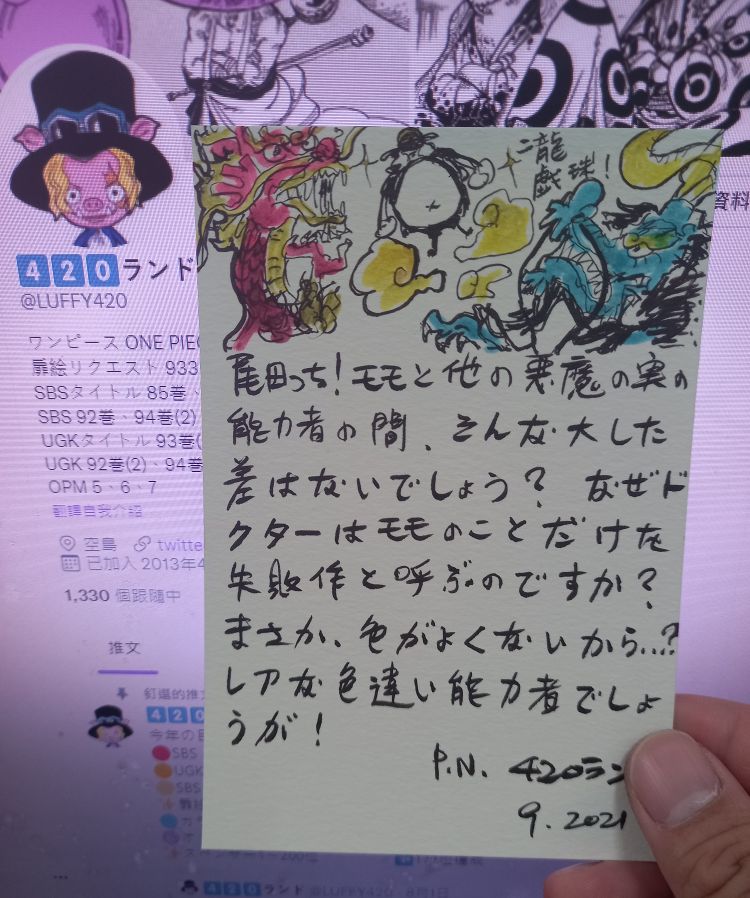 420ランド
@LUFFY420
ワンピース ONE PIEC
扉絵リクエスト 933
SBSタイトル 85巻、
SBS 92巻、94巻(2)
UGKタイトル 93巻(
UGK 92巻(2)、94巻
OPM 5、6、7
翻譯自我介紹
空島 twitte
已加入 2013年4
1,330 個跟隨中
推文
釘選的推文
420
今年の
SBS
UGK
SBS
420ランド @LUFFY420 · 8月1日
資料
二龍
戲珠!
尾田っち!モモと他の悪魔の実の
能力者の間、そんな大した
差はないでしょう?なぜド
クターはモモのことだけを
失敗作と呼ぶのですか?
まさか、色がよくないから...?
レアな色違い能力者でしょ
うが!
P.N. 420ラン
9.2021